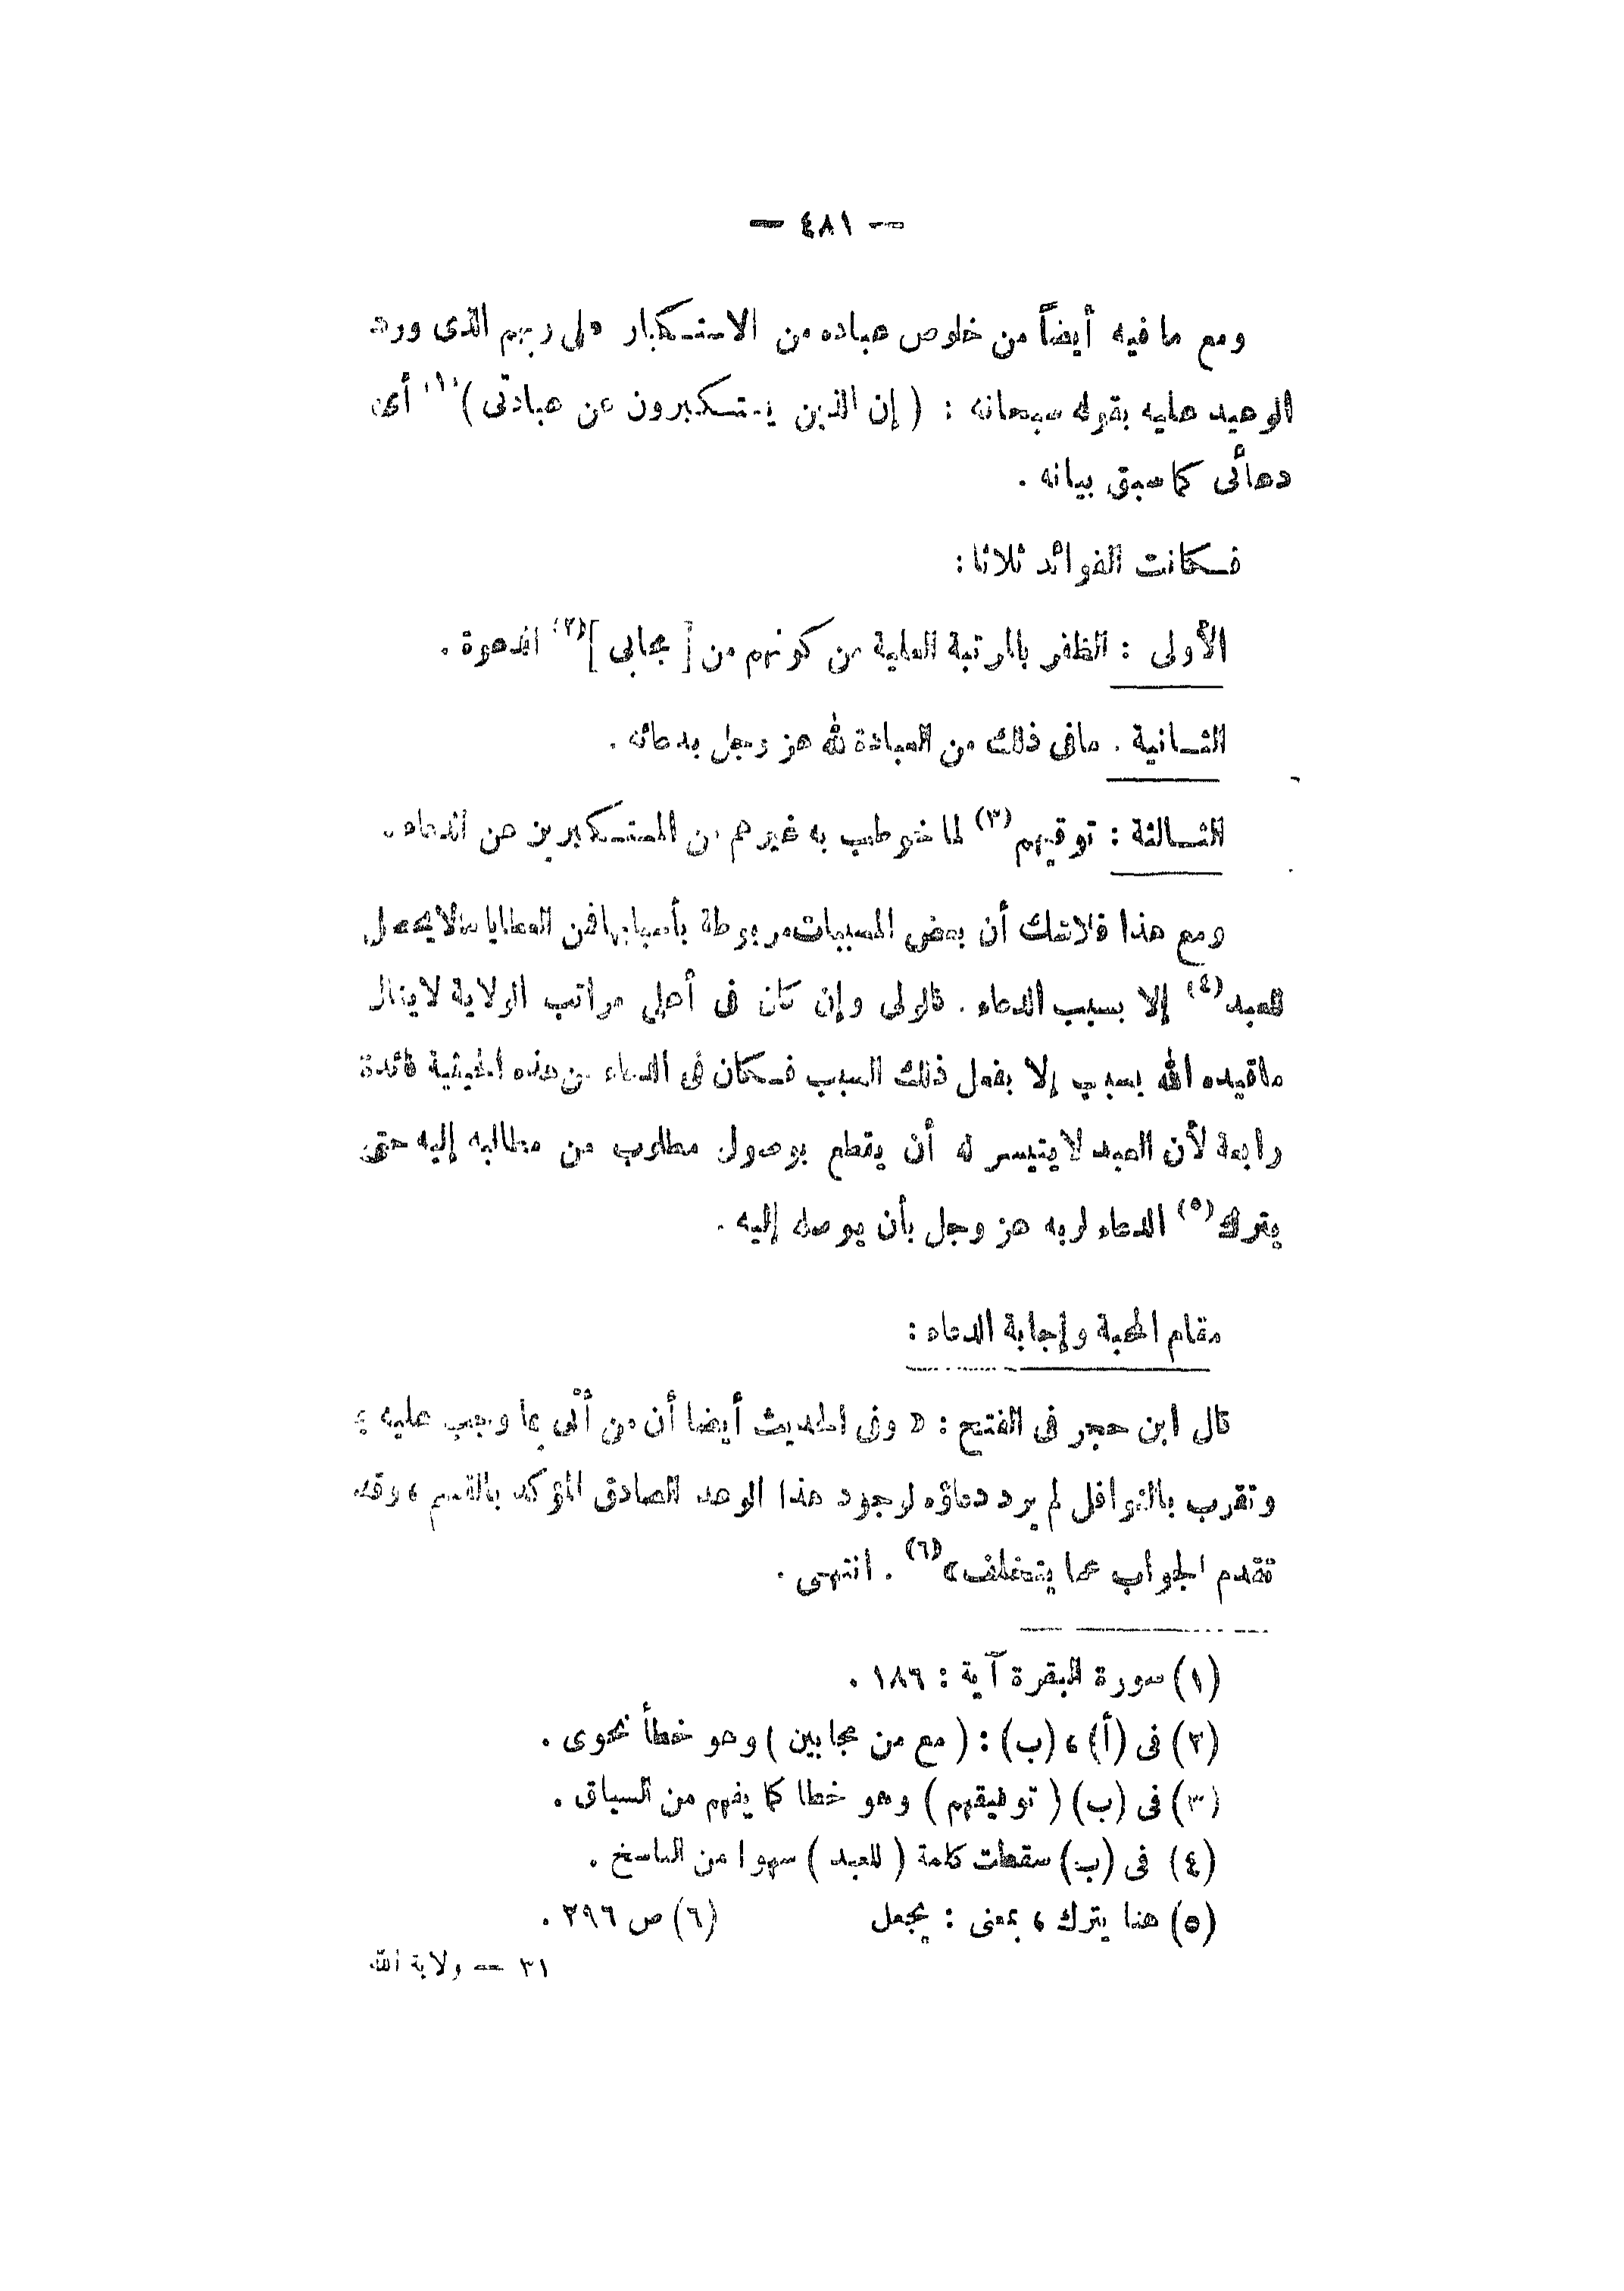 — ٤٨١ —
ومع ما فيه أيضاً من خلوص عباده من الاستكبار على ربهم الذى ورد
الوعيد عليه بقوله سبحانه : ( إن الذين يستكبرون عن عبادتى )(١) أى
دعائى كما سبق بيانه .
فكانت الفوائد ثلاثا :
الأولى : الظفر بالمرتبة العلية من كونهم من [ مجابى ](٢) الدعوة .
الثانية . ما فى ذلك من العبادة لله عز وجل بدعائه .
الثالثة : توقيهم(٣) لما خوطب به غيرهم من المستكبرين عن الدعاء .
ومع هذا فلاشك أن بعض المسببات مربوطة بأسبابها فمن العطايا مالا يحصل
للعبد(٤) إلا بسبب الدعاء . فالولى وإن كان فى أعلى مراتب الولاية لا ينال
ما قيده الله بسبب إلا بفعل ذلك السبب فكان فى الدعاء من هذه الحيثية فائدة
رابعة لأن العبد لا يتيسر له أن يقطع بوصول مطلوب من مطالبه إليه حتى
يترك(٥) الدعاء لربه عز وجل بأن يوصله إليه .
مقام المحبة وإجابة الدعاء :
قال ابن حجر فى الفتح : « وفى الحديث أيضا أن من أتى بما وجب عليه ؛
وتقرب بالنوافل لم يرد دعاؤه لوجود هذا الوعد الصادق المؤكد بالقسم ، وقد
تقدم الجواب عما يتخلف »(٦) . انتهى .
(١) سورة البقرة آية : ١٨٦ .
(٢) فى (أ) ، (ب) : ( مع من مجابين ) وهو خطأ نحوى .
(٣) فى (ب) ( توفيقهم ) وهو خطا كما يفهم من السياق .
(٤) فى (ب) سقطت كلمة ( للعبد ) سهوا من الناسخ .
(٥) هنا يترك ، بمعنى : يجعل (٦) ص ٢٩٦ .
٣١ — ولاية الله